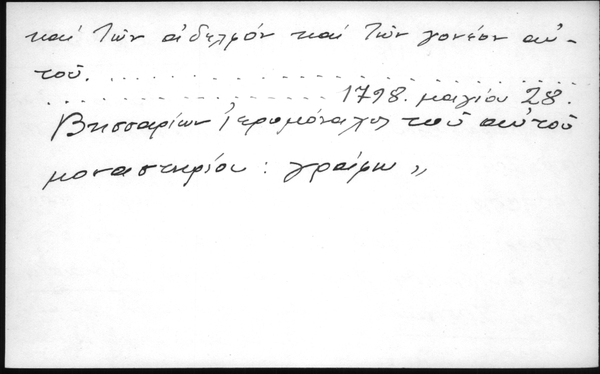 καί τῶν ἀδελφόν καί τῶν γονέον αὐ-
τοῦ. . . . . . . . . . . . . . . . . . . . . . . . . . . .
. . . . . . . . . . . . . . . . . 1798. μαγίου 28.
Βησσαρίων ἱερομόναχος τοῦ αὐτοῦ
μοναστηρίου : γράφω „